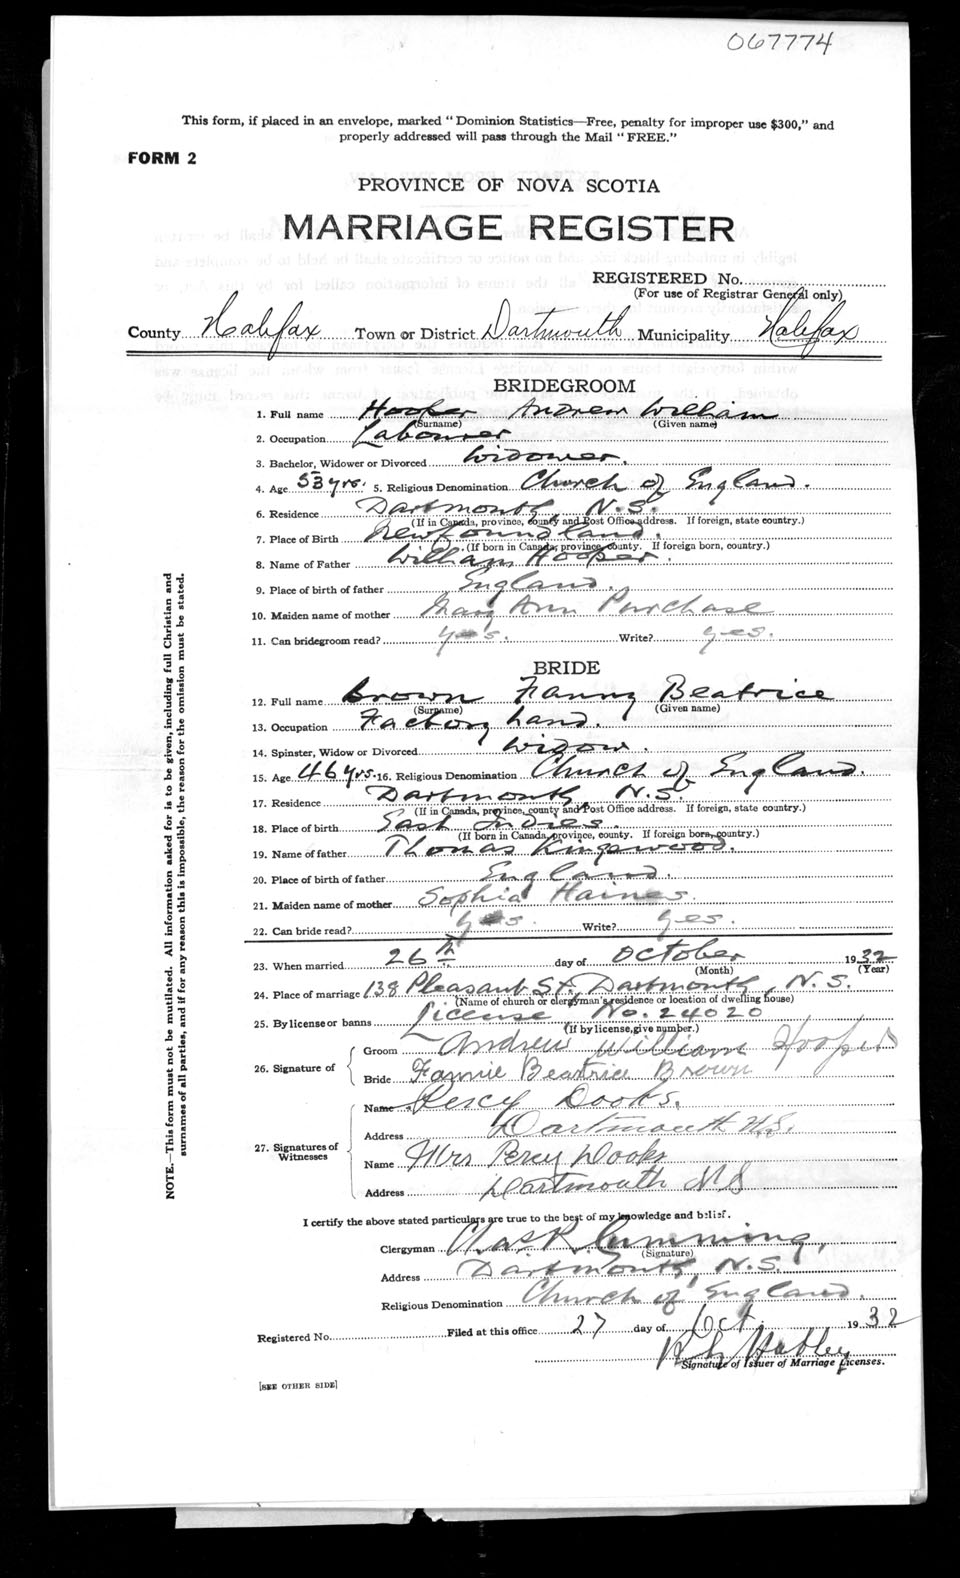 067774
This form, if placed in an envelope, marked "Dominion Statistics—Free, penalty for improper use $300," and
properly addressed will pass through the Mail "FREE."
FORM 2
PROVINCE OF NOVA SCOTIA
MARRIAGE REGISTER
REGISTERED No.
(For use of Registrar General only)
County Halifax Town or District Dartmouth Municipality Halifax
BRIDEGROOM
1. Full name Hooper Andrew William
(Surname) (Given name)
2. Occupation Labourer
3. Bachelor, Widower or Divorced Widower.
4. Age 53 yrs. 5. Religious Denomination Church of England.
6. Residence Dartmouth, N.S.
(If in Canada, province, county and Post Office address. If foreign, state country.)
7. Place of Birth Newfoundland.
(If born in Canada, province, county. If foreign born, country.)
8. Name of Father William Hooper.
9. Place of birth of father England.
10. Maiden name of mother Mary Ann Purchase
11. Can bridegroom read? yes. Write? yes.
BRIDE
12. Full name Brown Fanny Beatrice
(Surname) (Given name)
13. Occupation Factory hand.
14. Spinster, Widow or Divorced Widow.
15. Age 46 yrs. 16. Religious Denomination Church of England.
17. Residence Dartmouth, N.S.
(If in Canada, province, county and Post Office address. If foreign, state country.)
18. Place of birth East Indies.
(If born in Canada, province, county. If foreign born, country.)
19. Name of father Thomas Kingswood.
20. Place of birth of father England.
21. Maiden name of mother Sophia Haines.
22. Can bride read? yes. Write? yes.
23. When married 26th day of October 1932
(Month) (Year)
24. Place of marriage 138 Pleasant St., Dartmouth, N.S.
(Name of church or clergyman's residence or location of dwelling house)
25. By license or banns License No. 24020
(If by license, give number.)
26. Signature of Groom Andrew William Hooper
Bride Fannie Beatrice Brown
27. Signatures of Witnesses Name Percy Dooks.
Address Dartmouth N.S.
Name Mrs Percy Dooks
Address Dartmouth N S
I certify the above stated particulars are true to the best of my knowledge and belief.
Clergyman Chas. R. Cumming,
(Signature)
Address Dartmouth, N.S.
Religious Denomination Church of England.
Registered No. Filed at this office 27 day of Oct. 1932
Signature of Issuer of Marriage Licenses.
[SEE OTHER SIDE]
NOTE.—This form must not be mutilated. All information asked for is to be given, including full Christian and
surnames of all parties, and if for any reason this is impossible, the reason for the omission must be stated.